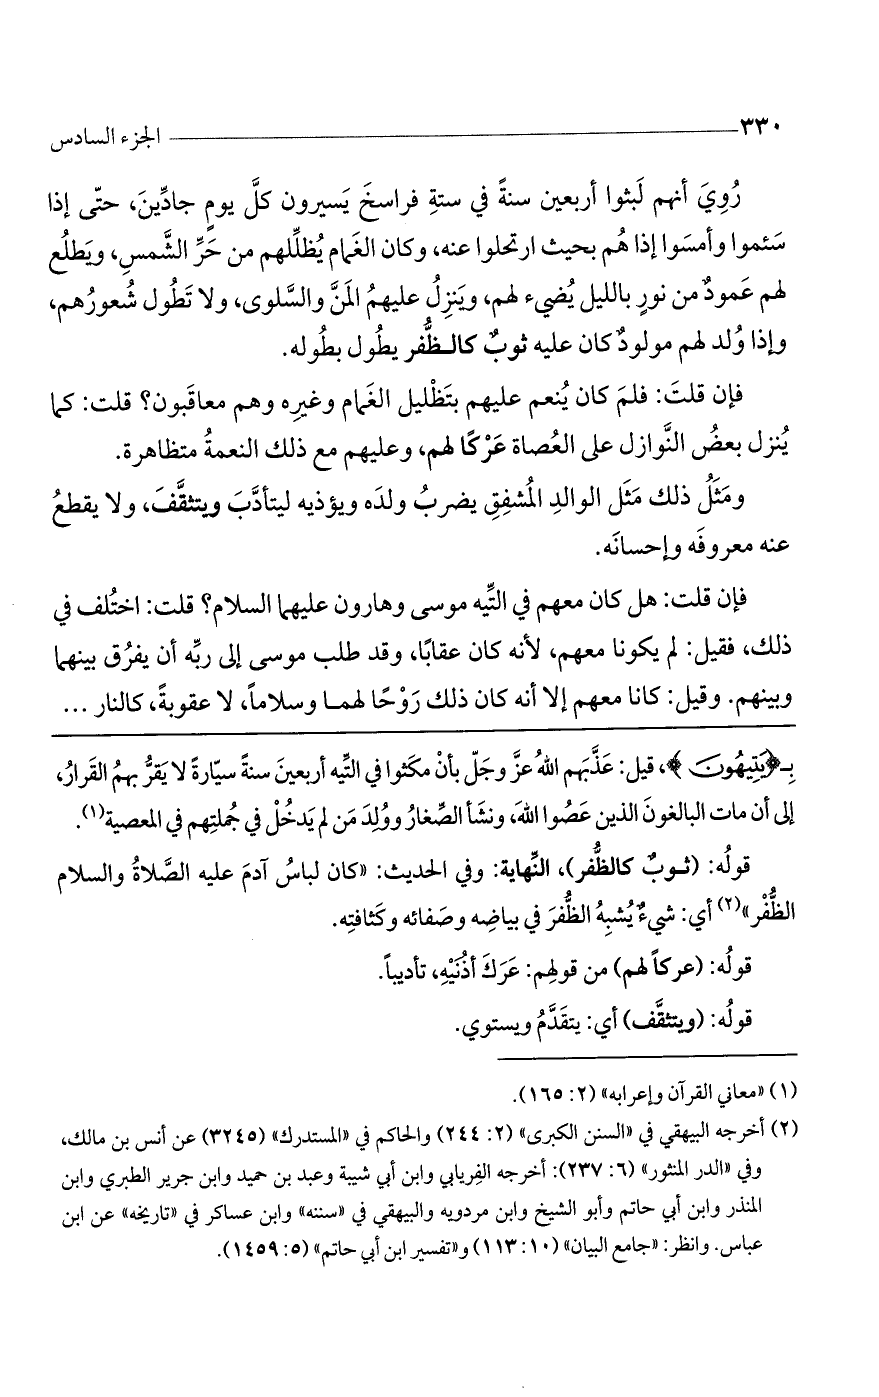 ٣٣٠ الجزء السادس
رُوِيَ أنهم لَبثوا أربعين سنةً في ستةِ فراسخَ يَسيرون كلَّ يومٍ جادِّينَ، حتّى إذا
سَئموا وأمسَوا إذا هُم بحيث ارتحلوا عنه، وكان الغَمام يُظلِّلهم من حَرِّ الشَّمسِ، ويَطلُع
لهم عَمودٌ من نورٍ بالليل يُضيء لهم، ويَنزِلُ عليهمُ المَنَّ والسَّلوى، ولا تَطُول شُعورُهم،
وإذا وُلد لهم مولودٌ كان عليه ثوبٌ كالـظُّفر يطُول بطُوله.
فإن قلتَ: فلمَ كان يُنعم عليهم بتَظْليل الغَمام وغيرِه وهم معاقَبون؟ قلت: كما
يُنزل بعضُ النَّوازل على العُصاة عَرْكًا لهم، وعليهم مع ذلك النعمةُ متظاهرة.
ومَثَلُ ذلك مَثَل الوالدِ المُشفِقِ يضربُ ولدَه ويؤذيه ليتأدَّبَ ويتثقَّفَ، ولا يقطعُ
عنه معروفَه وإحسانَه.
فإن قلت: هل كان معهم في التِّيه موسى وهارون عليهما السلام؟ قلت: اختُلف في
ذلك، فقيل: لم يكونا معهم، لأنه كان عقابًا، وقد طلب موسى إلى ربِّه أن يفرُق بينهما
وبينهم. وقيل: كانا معهم إلا أنه كان ذلك رَوْحًا لهمـا وسلاماً، لا عقوبةً، كالنار ...
بـ﴿يَتِيهُونَ﴾، قيل: عَذَّبَهم اللهُ عزَّ وجَلّ بأنْ مكَثوا في التِّيه أربعينَ سنةً سيّارةً لا يَقرُّ بهمُ القَرارُ،
إلى أن مات البالغونَ الذين عَصُوا اللهَ، ونشَأ الصِّغارُ ووُلِدَ مَن لم يَدخُلْ في جُملتِهم في المعصية(١).
قولُه: (ثـوبٌ كالظُّفر)، النِّهاية: وفي الحديث: «كان لباسُ آدمَ عليه الصَّلاةُ والسلام
الظُّفْر»(٢) أي: شيءٌ يُشبِهُ الظُّفرَ في بياضِه وصَفائه وكَثافتِه.
قولُه: (عركاً لهم) من قولهِم: عَرَكَ أذُنَيْهِ، تأديباً.
قولُه: (ويتثقَّف) أي: يتقَدَّمُ ويستوي.
(١) «معاني القرآن وإعرابه» (٢: ١٦٥).
(٢) أخرجه البيهقي في «السنن الكبرى» (٢: ٢٤٤) والحاكم في «المستدرك» (٣٢٤٥) عن أنس بن مالك،
وفي «الدر المنثور» (٦: ٢٣٧): أخرجه الفِريابي وابن أبي شيبة وعبد بن حميد وابن جرير الطبري وابن
المنذر وابن أبي حاتم وأبو الشيخ وابن مردويه والبيهقي في «سننه» وابن عساكر في «تاريخه» عن ابن
عباس. وانظر: «جامع البيان» (١٠: ١١٣) و«تفسير ابن أبي حاتم» (٥: ١٤٥٩).